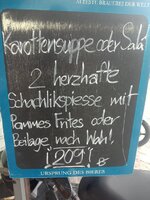 ÄLTESTE BRAUEREI DER WELT
Karottensuppe oder Salat
2 herzhafte
Schachlikspiesse mit
Pommes Frites oder
Beilage nach Wahl
! 209 !
URSPRUNG DES BIERES